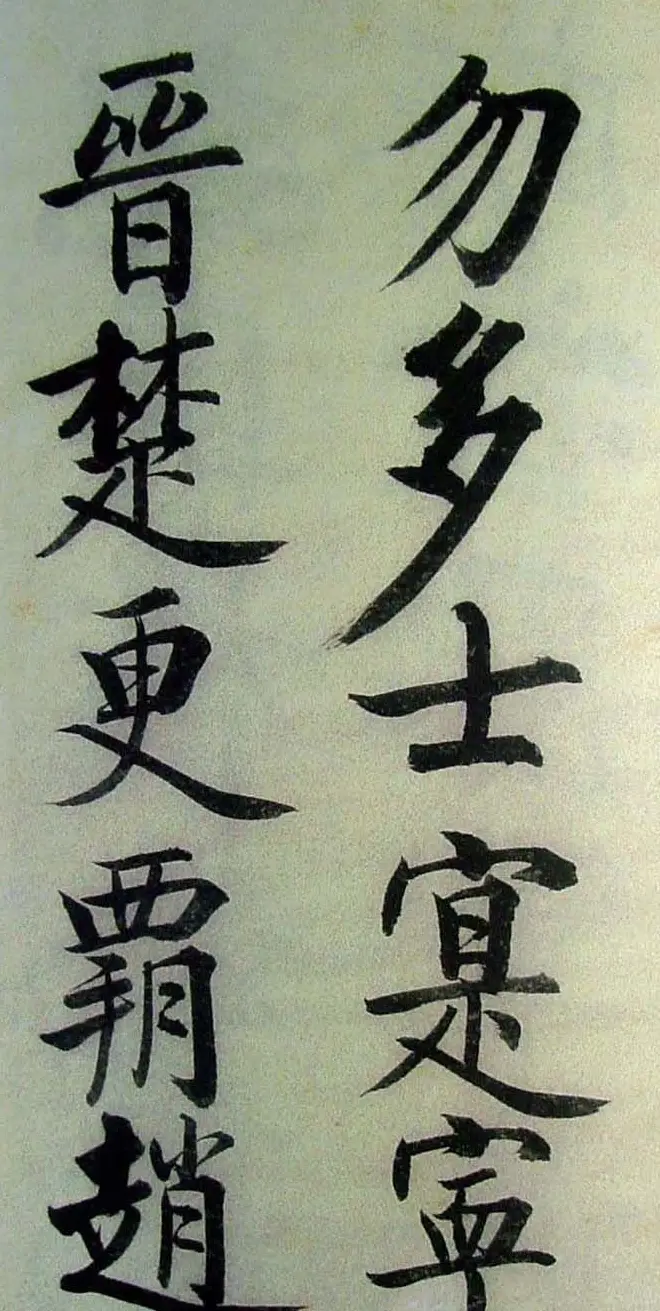 勿多士寔寧
晉楚更霸趙